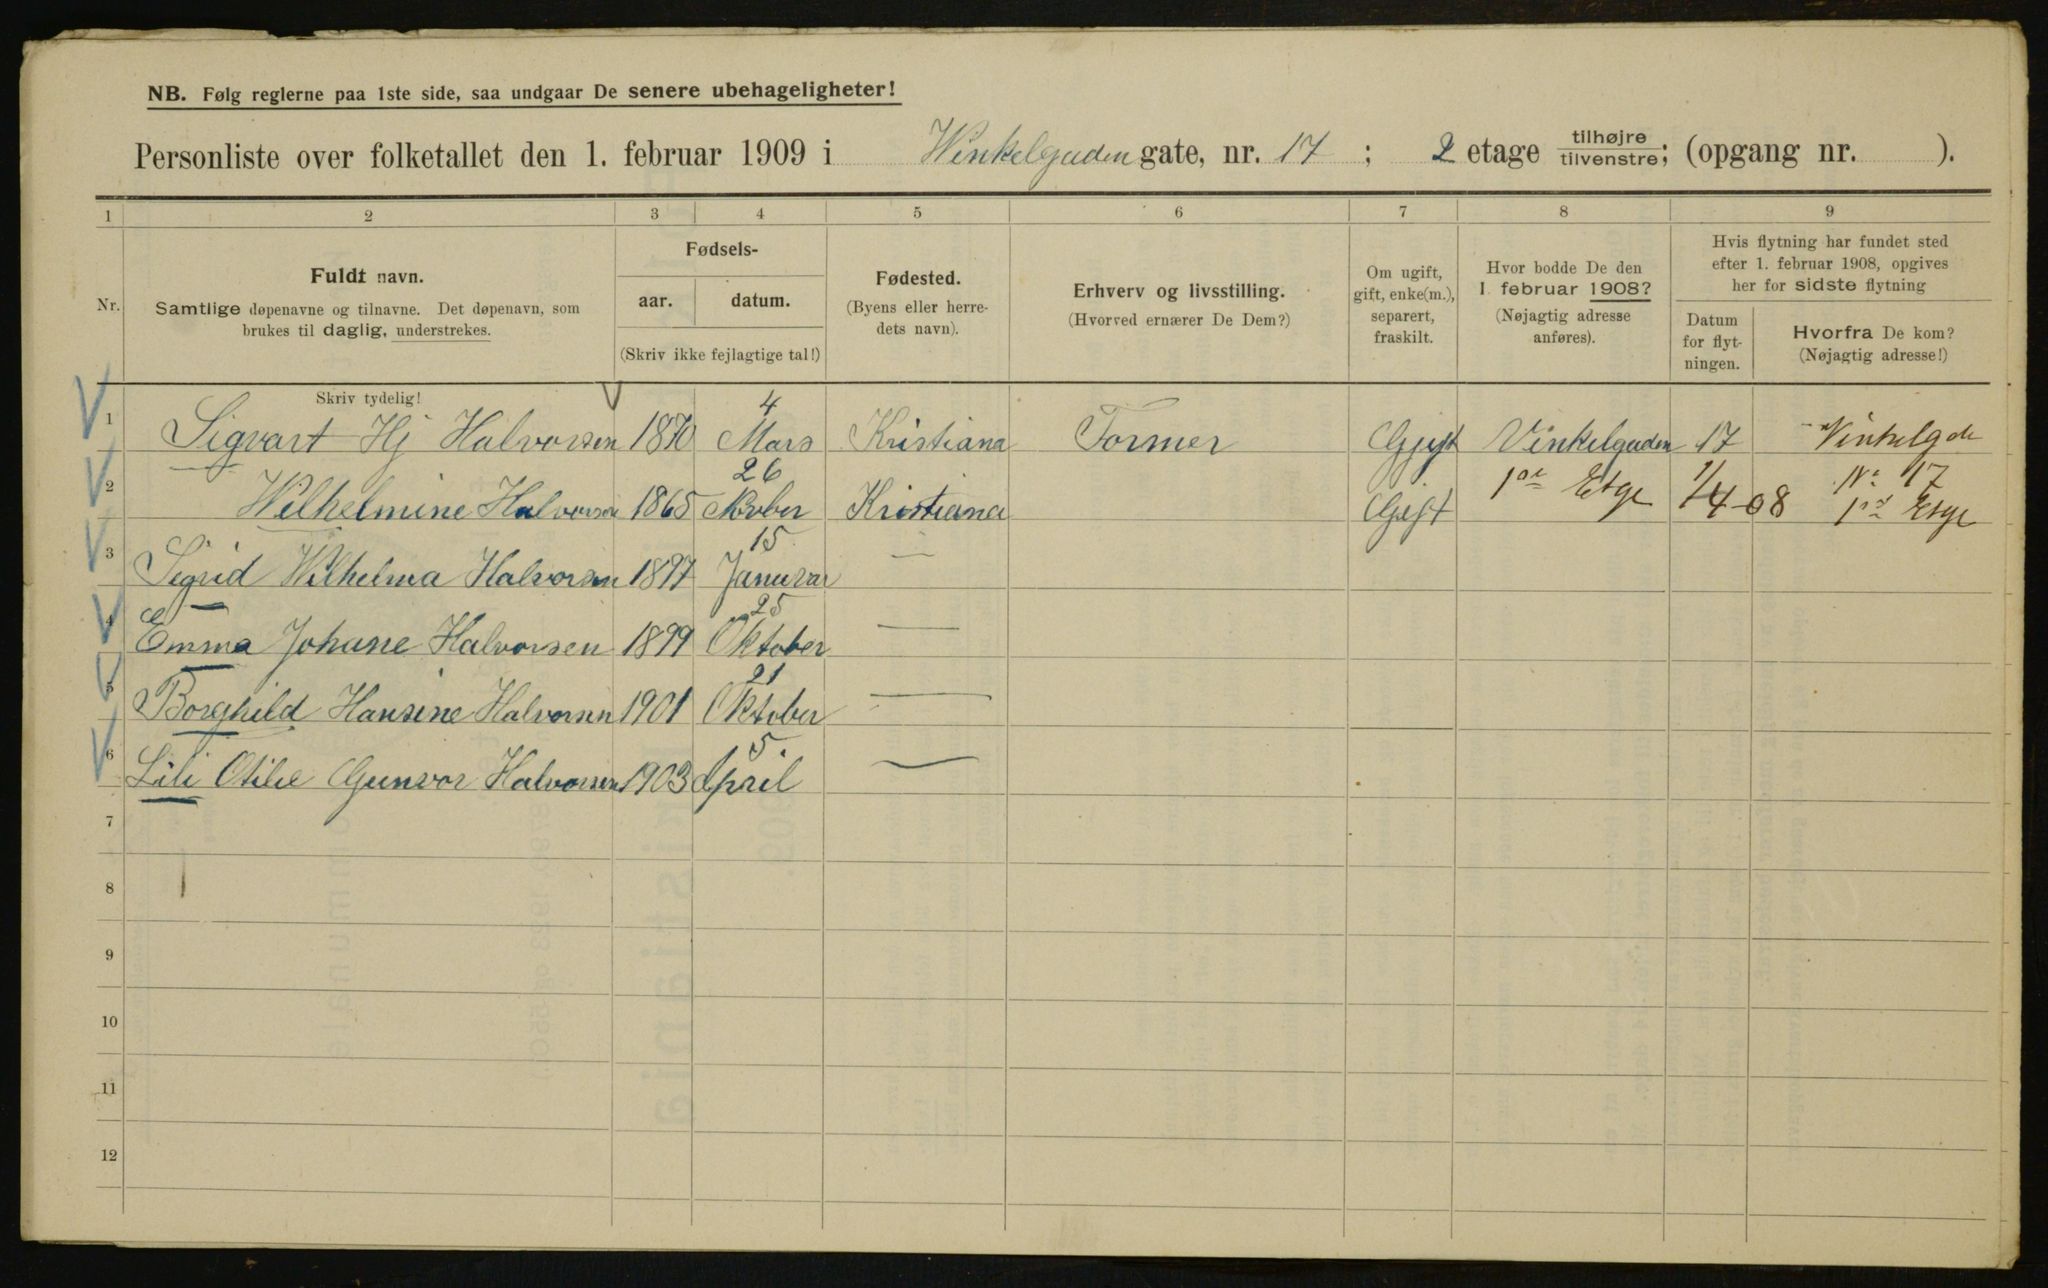 NB. Følg reglerne paa 1ste side, saa undgaar De senere ubehageligheter!
Personliste over folketallet den 1. februar 1909 i Winkelgaden gate, nr. 17 ; 2 etage tilhøjre tilvenstre; (opgang nr. ).
1 2 3 4 5 6 7 8 9
Nr.
Fuldt navn.
Samtlige døpenavne og tilnavne. Det døpenavn, som
brukes til daglig, understrekes.
Fødsels-
aar. datum.
(Skriv ikke fejlagtige tal!)
Fødested.
(Byens eller herre-
dets navn).
Erhverv og livsstilling.
(Hvorved ernærer De Dem?)
Om ugift,
gift, enke(m.),
separert,
fraskilt.
Hvor bodde De den
1 februar 1908?
(Nøjagtig adresse
anføres).
Hvis flytning har fundet sted
efter 1. februar 1908, opgives
her for sidste flytning
Datum
for flyt-
ningen.
Hvorfra De kom?
(Nøjagtig adresse!)
Skriv tydelig!
1 Sigvart Hj Halvorsen 1870 4 Mars Kristiana Former Gift Vinkelgaden 17 Vinkelgde
2 Wilhelmine Halvorsen 1865 26 Kristiana Gift 1ste Etge 1/4-08 No 17 1ste Etge
3 Sigrid Wilhelma Halvorsen 1897 15 Januar —
4 Emma Johane Halvorsen 1899 25 Oktober —
5 Borghild Hansine Halvorsen 1901 21 Oktober —
6 Lili Otilie Gunvor Halvorsen 1903 5. April —
7
8
9
10
11
12